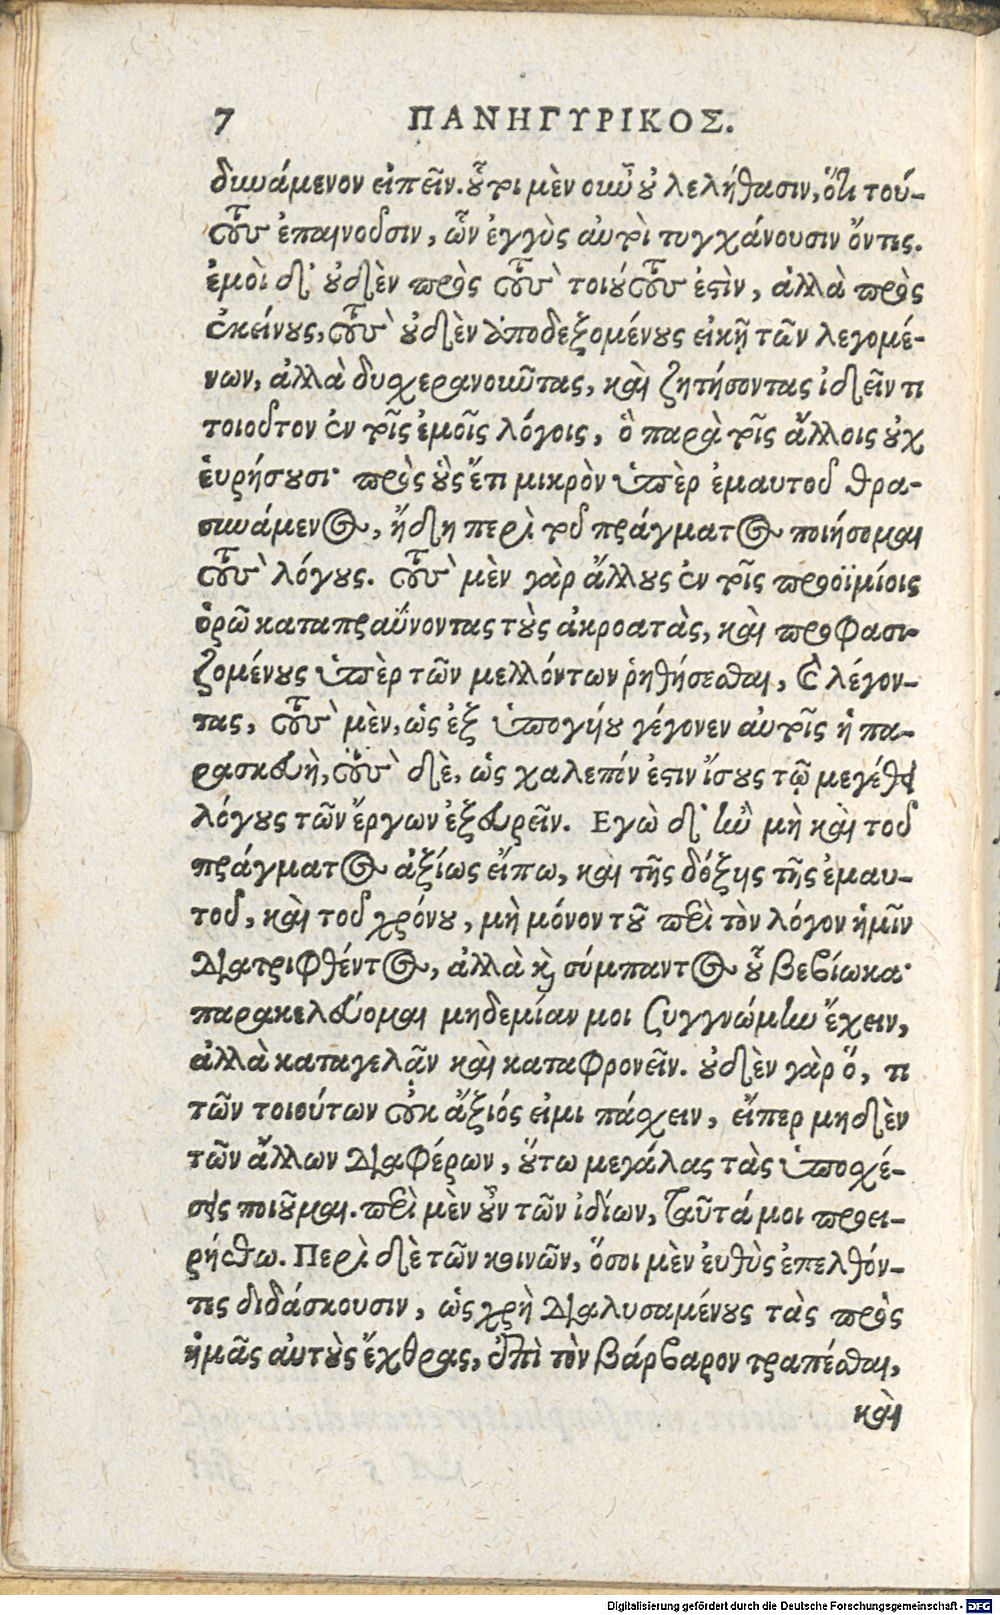 7 ΠΑΝΗΓΥΡΙΚΟΣ.
δυνάμενον εἰπεῖν. οὗτοι μὲν οὖν οὐ λελήθασιν, ὅτι τού-
τους ἐπαινοῦσιν, ὧν ἐγγὺς αὐτοὶ τυγχάνουσιν ὄντες.
ἐμοὶ δ' οὐδὲν πρὸς τοὺς τοιούτους ἐστὶν, ἀλλὰ πρὸς
ἐκείνους, τοὺς οὐδὲν ἀποδεξομένους εἰκῇ τῶν λεγομέ-
νων, ἀλλὰ δυσχερανοῦντας, καὶ ζητήσοντας ἰδεῖν τι
τοιοῦτον ἐν τοῖς ἐμοῖς λόγοις, ὃ παρὰ τοῖς ἄλλοις οὐχ
εὑρήσουσι· πρὸς οὓς ἔτι μικρὸν ὑπὲρ ἐμαυτοῦ θρα-
συνάμενος, ἤδη περὶ τοῦ πράγματος ποιήσομαι
τοὺς λόγους. τοὺς μὲν γὰρ ἄλλους ἐν τοῖς προοϊμίοις
ὁρῶ καταπραΰνοντας τοὺς ἀκροατὰς, καὶ προφασι-
ζομένους ὑπὲρ τῶν μελλόντων ῥηθήσεσθαι, καὶ λέγον-
τας, τοὺς μὲν, ὡς ἐξ ὑπογύου γέγονεν αὐτοῖς ἡ πα-
ρασκευὴ, τοὺς δὲ, ὡς χαλεπόν ἐστιν ἴσους τῷ μεγέθει
λόγους τῶν ἔργων ἐξευρεῖν. Εγὼ δ' ἢν μὴ καὶ τοῦ
πράγματος ἀξίως εἴπω, καὶ τῆς δόξης τῆς ἐμαυ-
τοῦ, καὶ τοῦ χρόνου, μὴ μόνον τοῦ περὶ τὸν λόγον ἡμῖν
διατριφθέντος, ἀλλὰ καὶ σύμπαντος οὗ βεβίωκα·
παρακελεύομαι μηδεμίαν μοι συγγνώμην ἔχειν,
ἀλλὰ καταγελᾷν καὶ καταφρονεῖν. οὐδὲν γὰρ ὅ, τι
τῶν τοιούτων οὐκ ἄξιός εἰμι πάσχειν, εἴπερ μηδὲν
τῶν ἄλλων διαφέρων, οὕτω μεγάλας τὰς ὑποσχέ-
σεις ποιοῦμαι. περὶ μὲν οὖν τῶν ἰδίων, ταῦτά μοι προει-
ρήσθω. Περὶ δὲ τῶν κοινῶν, ὅσοι μὲν εὐθὺς ἐπελθόν-
τες διδάσκουσιν, ὡς χρὴ διαλυσαμένους τὰς πρὸς
ἡμᾶς αὐτοὺς ἔχθρας, ἐπὶ τὸν βάρβαρον τραπέσθαι,
καὶ
Digitalisierung gefördert durch die Deutsche Forschungsgemeinschaft - DFG